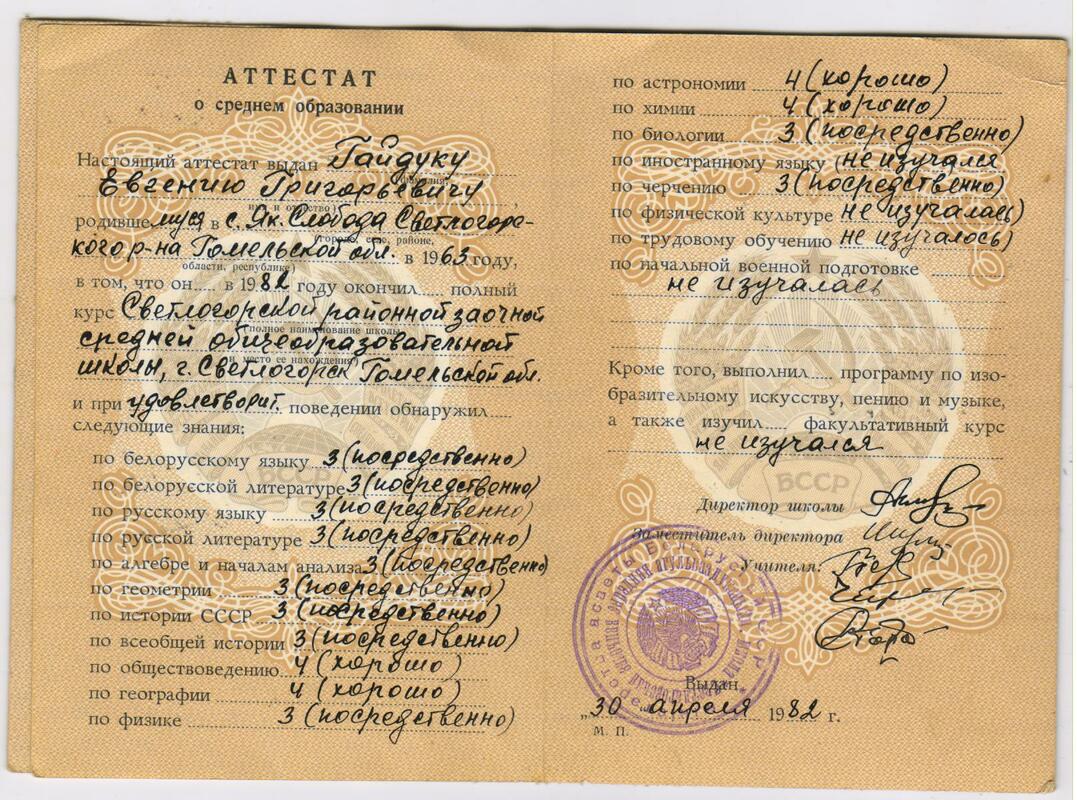 АТТЕСТАТ
о среднем образовании
Настоящий аттестат выдан Гайдуку
(фамилия,
Евгению Григорьевичу,
имя и отчество)
родившемуся в с. Як. Слобода Светлогорс-
(городе, селе, районе,
кого р-на Гомельской обл. в 1963 году,
области, республике)
в том, что он в 1982 году окончил полный
курс Светлогорской районной заочной
(полное наименование школы
средней общеобразовательной
и место ее нахождения)
школы, г. Светлогорск Гомельской обл.
и при удовлетворит. поведении обнаружил
следующие знания:
по белорусскому языку 3 (посредственно)
по белорусской литературе 3 (посредственно)
по русскому языку 3 (посредственно)
по русской литературе 3 (посредственно)
по алгебре и началам анализа 3 (посредственно)
по геометрии 3 (посредственно)
по истории СССР 3 (посредственно)
по всеобщей истории 3 (посредственно)
по обществоведению 4 (хорошо)
по географии 4 (хорошо)
по физике 3 (посредственно)
по астрономии 4 (хорошо)
по химии 4 (хорошо)
по биологии 3 (посредственно)
по иностранному языку (не изучался
по черчению 3 (посредственно)
по физической культуре не изучалась)
по трудовому обучению не изучалось)
по начальной военной подготовке
не изучалась
Кроме того, выполнил программу по изо-
бразительному искусству, пению и музыке,
а также изучил факультативный курс
не изучался
БССР
Директор школы
Заместитель директора
Учителя:
Выдан
„30" апреля 1982 г.
М. П.